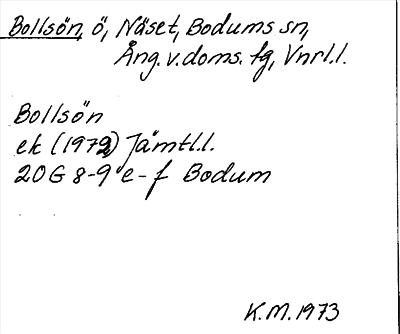 Bollsön, ö, Näset, Bodums sn,
Ång. v. doms. fg, Vnrl. l.
Bollsön
ek (1972) Jämtl. l.
20 G 8-9 e-f Bodum
K.M. 1973